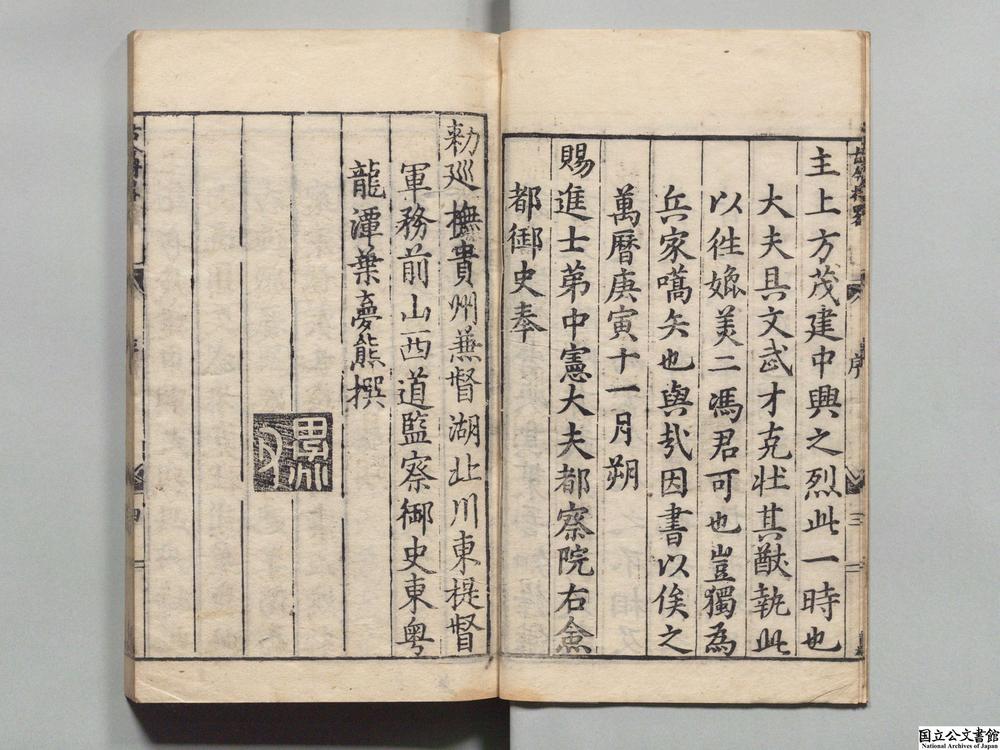 主上方茂建中興之烈此一時也
大夫具文武才克壯其猷執此
以徃媲美二馮君可也豈獨為
兵家嚆矢也與㢤因書以俟之
萬曆庚寅十一月朔
賜進士第中憲大夫都察院右僉
都御史奉
勑巡撫貴州蕪督湖北川東提督
軍務前山西道監察御史東粤
龍潭葉夢熊撰
序
三
国立公文書館
National Archives of Japan